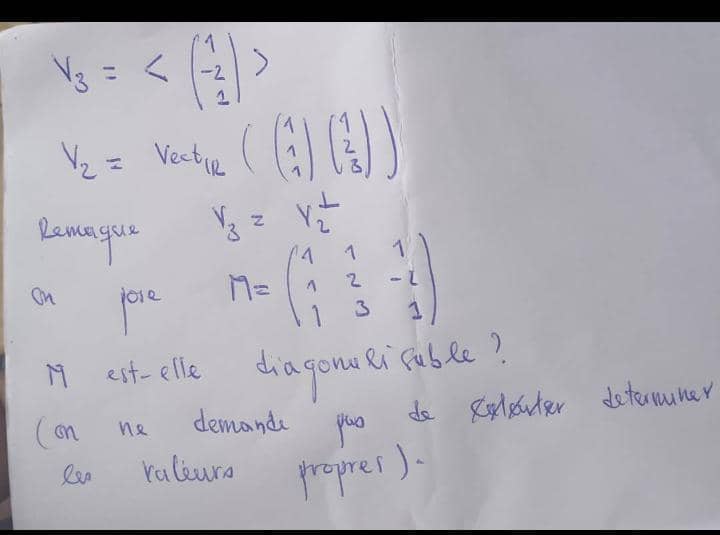 V₃ = < (1 -2 1) >
V₂ = Vect_IR ( (1 1 1) (1 2 3) )
Remarque V₃ = V₂^⊥
on pose M = (1 1 1
1 2 -2
1 3 1)
M est-elle diagonalisable ?
(on ne demande pas de determiner
les valeurs propres).